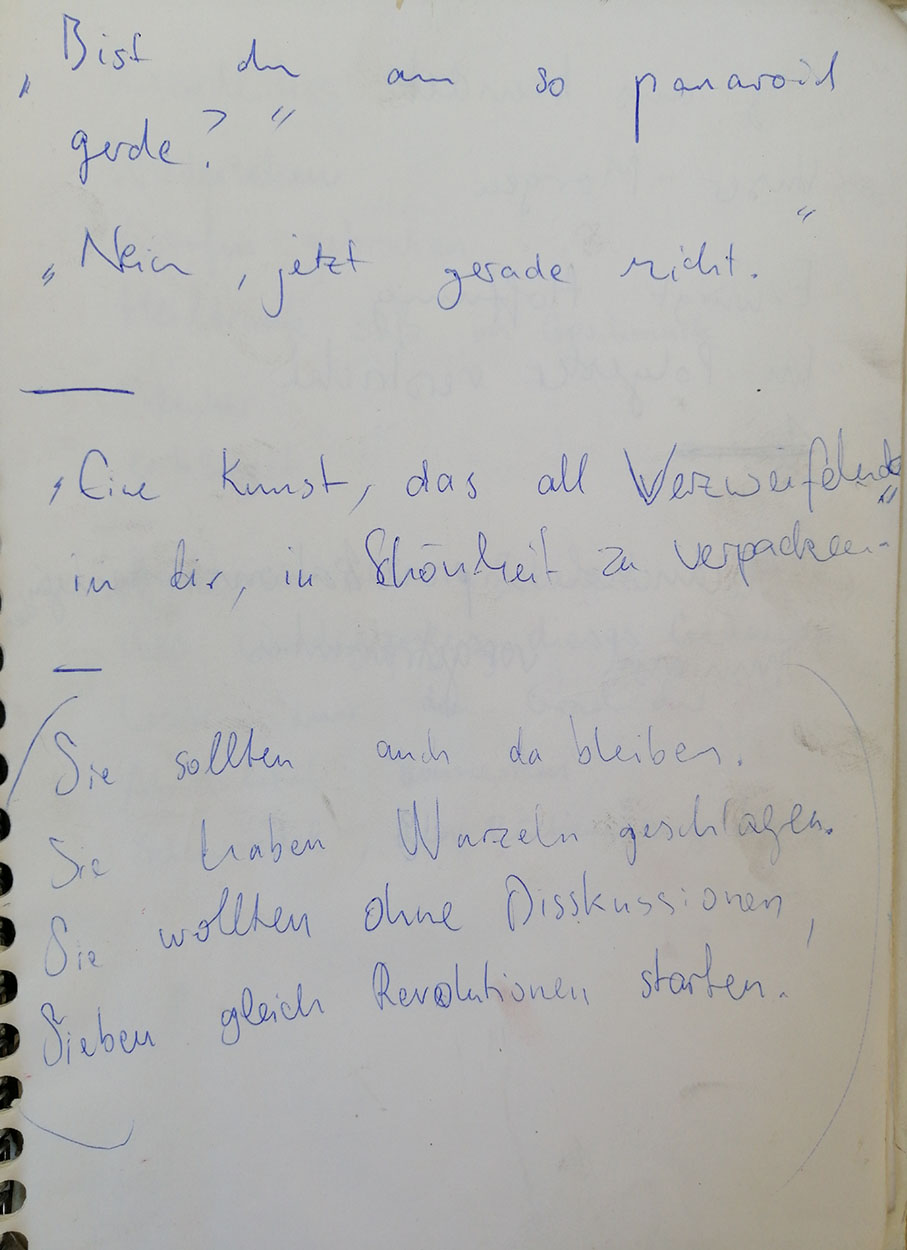 „Bist du am so paranoid
gerde?"
„Nein, jetzt gerade nicht."
„Eine Kunst, das all Verzweifelnde
in dir, in Schönheit zu verpacken."
Sie sollten auch da bleiben.
Sie haben Wurzeln geschlagen.
Sie wollten ohne Disskussionen,
Sieben gleich Revolutionen starten.